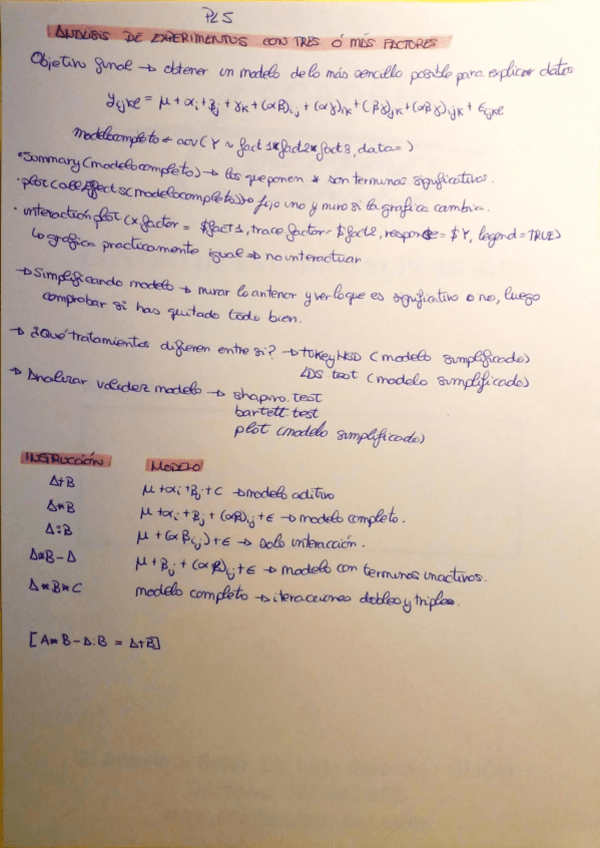 PL5
ANÁLISIS DE EXPERIMENTOS CON TRES Ó MÁS FACTORES
Objetivo final → obtener un modelo de lo más sencillo posible para explicar datos
yijkl = μ + αi + βj + γk + (αβ)ij + (αγ)ik + (βγ)jk + (αβγ)ijk + εijkl
modelocompleto ← aov (Y ~ fact1*fact2*fact3, data= )
• Summary (modelocompleto) → los que ponen * son terminos significativos.
• plot (allEffects (modelocompleto)) → fijo uno y miro si la grafica cambia.
• interaction.plot (x.factor = $fact1, trace.factor = $fact2, response = $Y, legend = TRUE)
↳ grafica practicamente igual → no interactuan
→ Simplificando modelo → mirar lo anterior y ver lo que es significativo o no, luego
comprobar si has quitado todo bien.
→ ¿Qué tratamientos difieren entre si? → tukeyHSD (modelo simplificado)
LDS.test (modelo simplificado)
→ Analizar validez modelo → shapiro.test
bartett.test
plot (modelo simplificado)
INSTRUCCIÓN MODELO
A+B μ + αi + βj + ε → modelo aditivo
A*B μ + αi + βj + (αβ)ij + ε → modelo completo.
A:B μ + (αβij) + ε → solo interacción.
A*B-A μ + βj + (αβ)ij + ε → modelo con terminos inactivos.
A*B*C modelo completo → iteracciones dobles y triples.
[A*B-A:B = A+B]